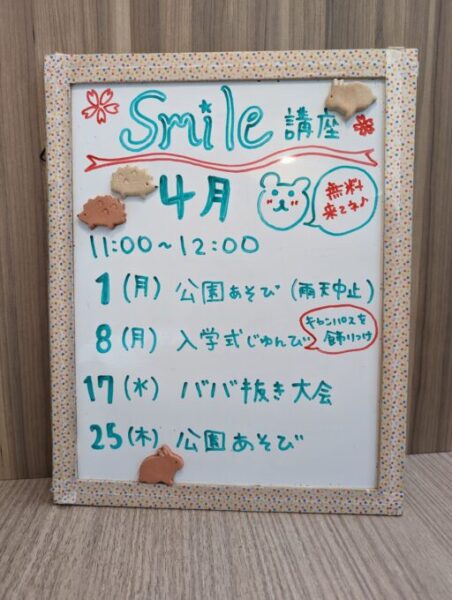 Smile 講座
4月
無料
来てネ♪
11:00~12:00
1(月) 公園あそび (雨天中止)
8(月) 入学式じゅんび
キャンパスを
飾りつけ
17(水) ババ抜き大会
25(木) 公園あそび